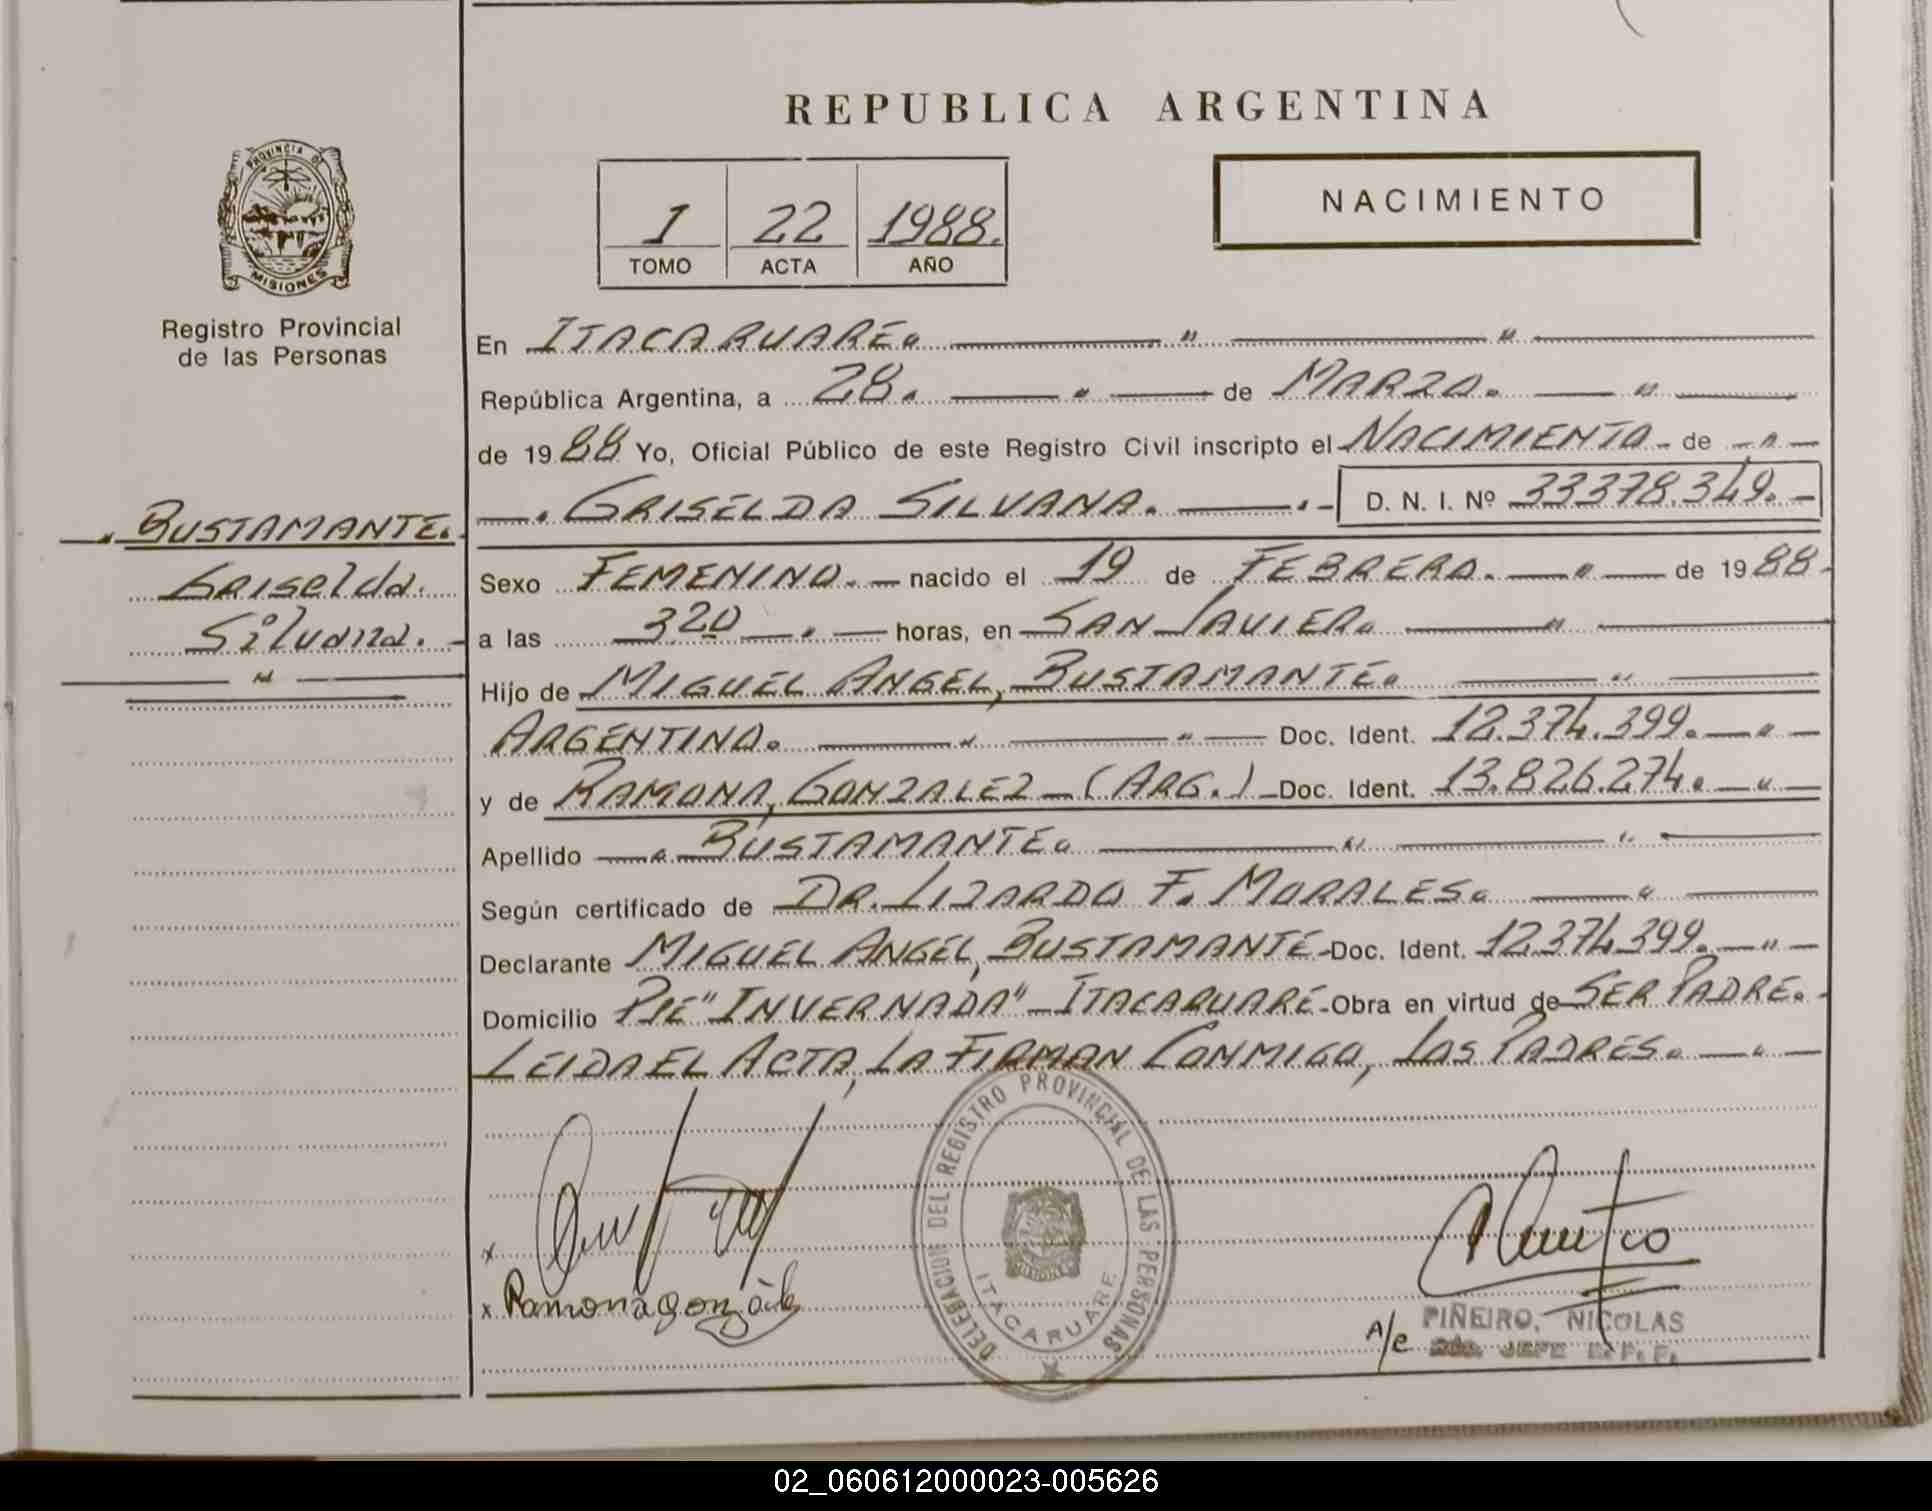 REPUBLICA ARGENTINA
PROVINCIA DE
MISIONES
Registro Provincial
de las Personas
1 22 1988.
TOMO ACTA AÑO
NACIMIENTO
En ITACARUARE. " "
República Argentina, a 28. " de MARZO. "
de 1988 Yo, Oficial Público de este Registro Civil inscripto el NACIMIENTO - de "
BUSTAMANTE.
Griselda.
Silvana.
GRISELDA SILVANA. D. N. I. Nº 33378.349.
Sexo FEMENINO. nacido el 19 de FEBRERO. " de 1988.
a las 320 horas, en SAN JAVIER. "
Hijo de MIGUEL ANGEL, BUSTAMANTE. "
ARGENTINO. " " Doc. Ident. 12.374.399. "
y de RAMONA, GONZALEZ - (ARG.) - Doc. Ident. 13.826.274. "
Apellido BUSTAMANTE. " "
Según certificado de DR. LIZARDO F. MORALES. "
Declarante MIGUEL ANGEL, BUSTAMANTE - Doc. Ident. 12.374.399. "
Domicilio PJE "INVERNADA" - ITACARUARE - Obra en virtud de SER PADRE.
LEIDA EL ACTA, LA FIRMAN CONMIGO, LOS PADRES. "
x
x Ramona gonzález
DELEGACION DEL REGISTRO PROVINCIAL DE LAS PERSONAS
MISIONES
ITACARUARE
PIÑEIRO, NICOLAS
A/c JEFE R. P. P.
02_060612000023-005626